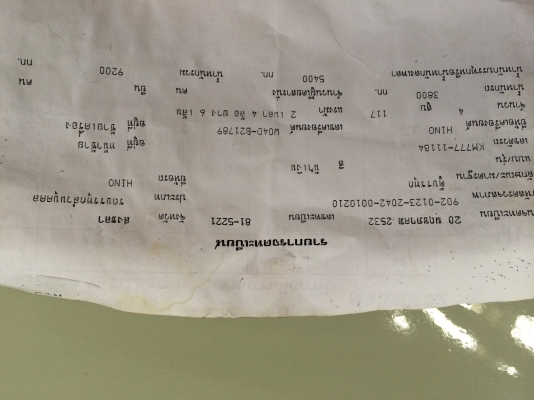 รายการจดทะเบียน
วันจดทะเบียน 20 พฤษภาคม 2532 เลขทะเบียน 81-5221 จังหวัด สงขลา
902-0123-2042-0010210 ประเภท รถบรรทุกส่วนบุคคล
ลักษณะมาตรฐาน ตู้บรรทุก ยี่ห้อรถ HINO
แบบ/รุ่น สี น้ำเงิน
เลขตัวรถ KM777-11184 อยู่ที่ หน้าซ้าย
ยี่ห้อเครื่องยนต์ HINO เลขเครื่องยนต์ W04D-B21789 อยู่ที่ ซ้ายเครื่อง
จำนวน 4 สูบ 117 แรงม้า 2 เพลา 4 ล้อ ยาง 6 เส้น
น้ำหนักรถ 3800 กก. จำนวนผู้โดยสารนั่ง คน ยืน คน
น้ำหนักบรรทุกหรือน้ำหนักลงเพลา 5400 กก. น้ำหนักรวม 9200 กก.